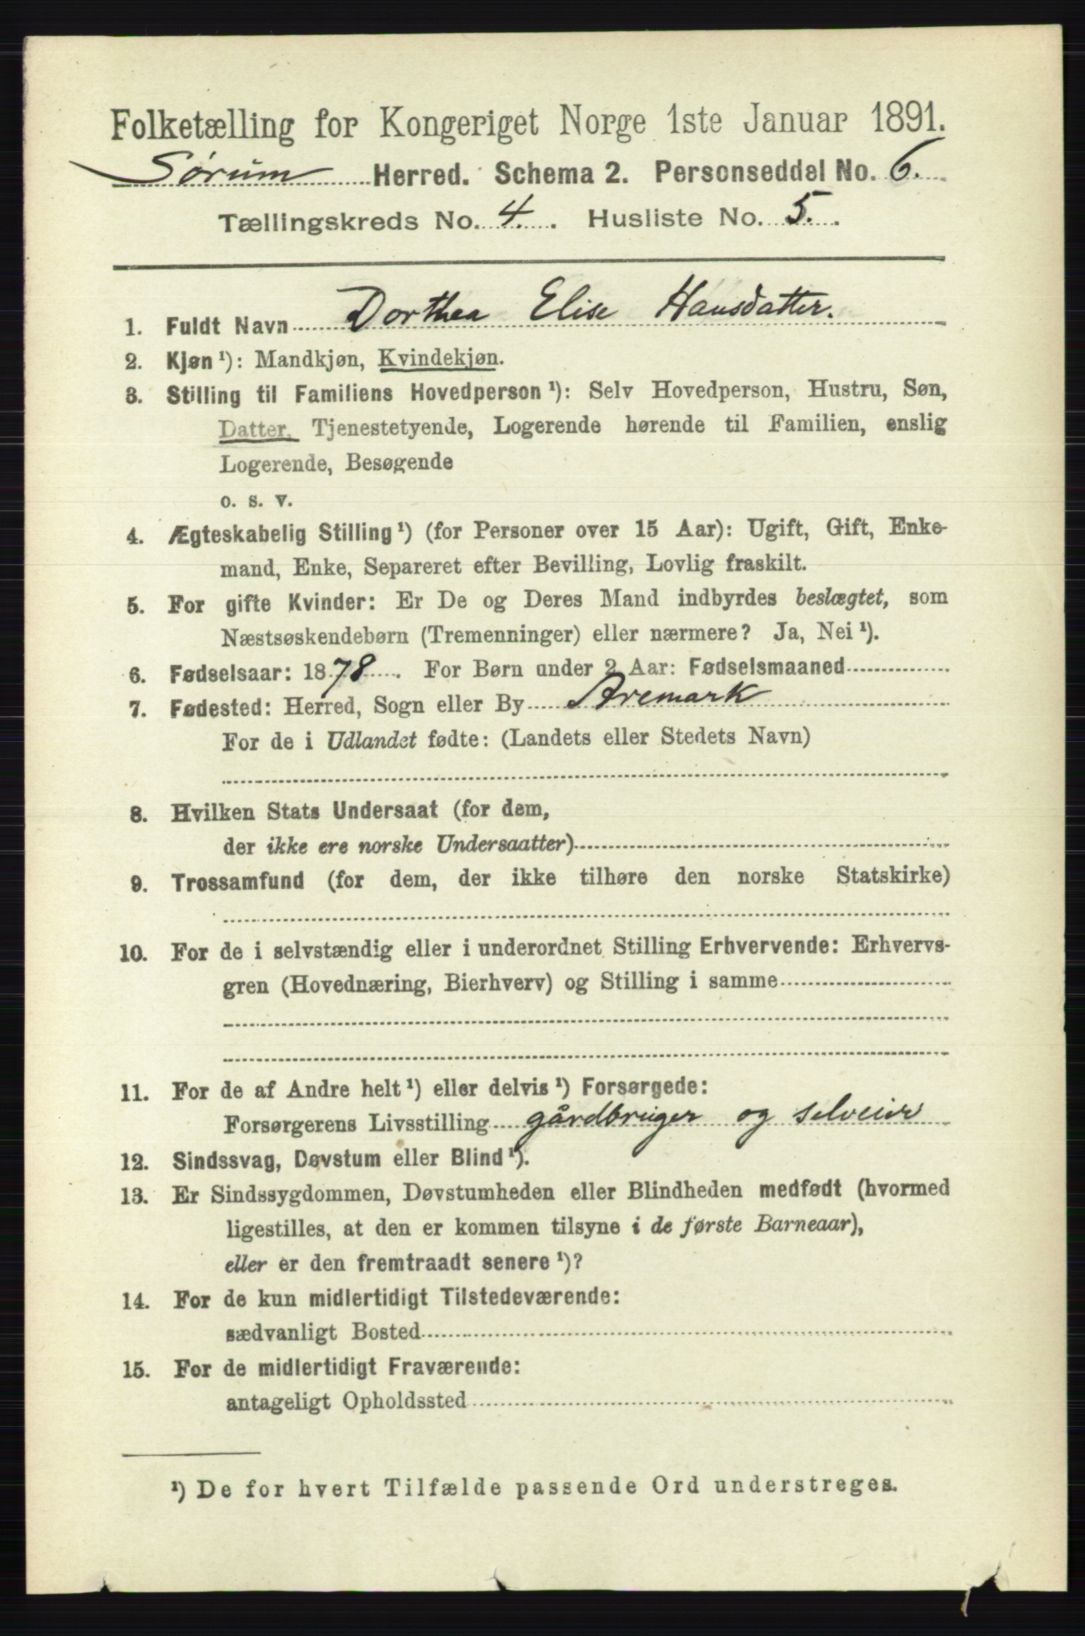 Folketælling for Kongeriget Norge 1ste Januar 1891.
Sørum Herred. Schema 2. Personseddel No. 6.
Tællingskreds No. 4. Husliste No. 5.
1. Fuldt Navn Dorthea Elise Hansdatter.
2. Kjøn ¹): Mandkjøn, Kvindekjøn.
3. Stilling til Familiens Hovedperson ¹): Selv Hovedperson, Hustru, Søn,
Datter, Tjenestetyende, Logerende hørende til Familien, enslig
Logerende, Besøgende
o. s. v.
4. Ægteskabelig Stilling ¹) (for Personer over 15 Aar): Ugift, Gift, Enke-
mand, Enke, Separeret efter Bevilling, Lovlig fraskilt.
5. For gifte Kvinder: Er De og Deres Mand indbyrdes beslægtet, som
Næstsøskendebørn (Tremenninger) eller nærmere? Ja, Nei ¹).
6. Fødselsaar: 1878. For Børn under 2 Aar: Fødselsmaaned
7. Fødested: Herred, Sogn eller By Aremark
For de i Udlandet fødte: (Landets eller Stedets Navn)
8. Hvilken Stats Undersaat (for dem,
der ikke ere norske Undersaatter)
9. Trossamfund (for dem, der ikke tilhøre den norske Statskirke)
10. For de i selvstændig eller i underordnet Stilling Erhvervende: Erhvervs-
gren (Hovednæring, Bierhverv) og Stilling i samme
11. For de af Andre helt ¹) eller delvis ¹) Forsørgede:
Forsørgerens Livsstilling gårdbruger og selveier
12. Sindssvag, Døvstum eller Blind ¹).
13. Er Sindssygdommen, Døvstumheden eller Blindheden medfødt (hvormed
ligestilles, at den er kommen tilsyne i de første Barneaar),
eller er den fremtraadt senere ¹)?
14. For de kun midlertidigt Tilstedeværende:
sædvanligt Bosted
15. For de midlertidigt Fraværende:
antageligt Opholdssted
¹) De for hvert Tilfælde passende Ord understreges.